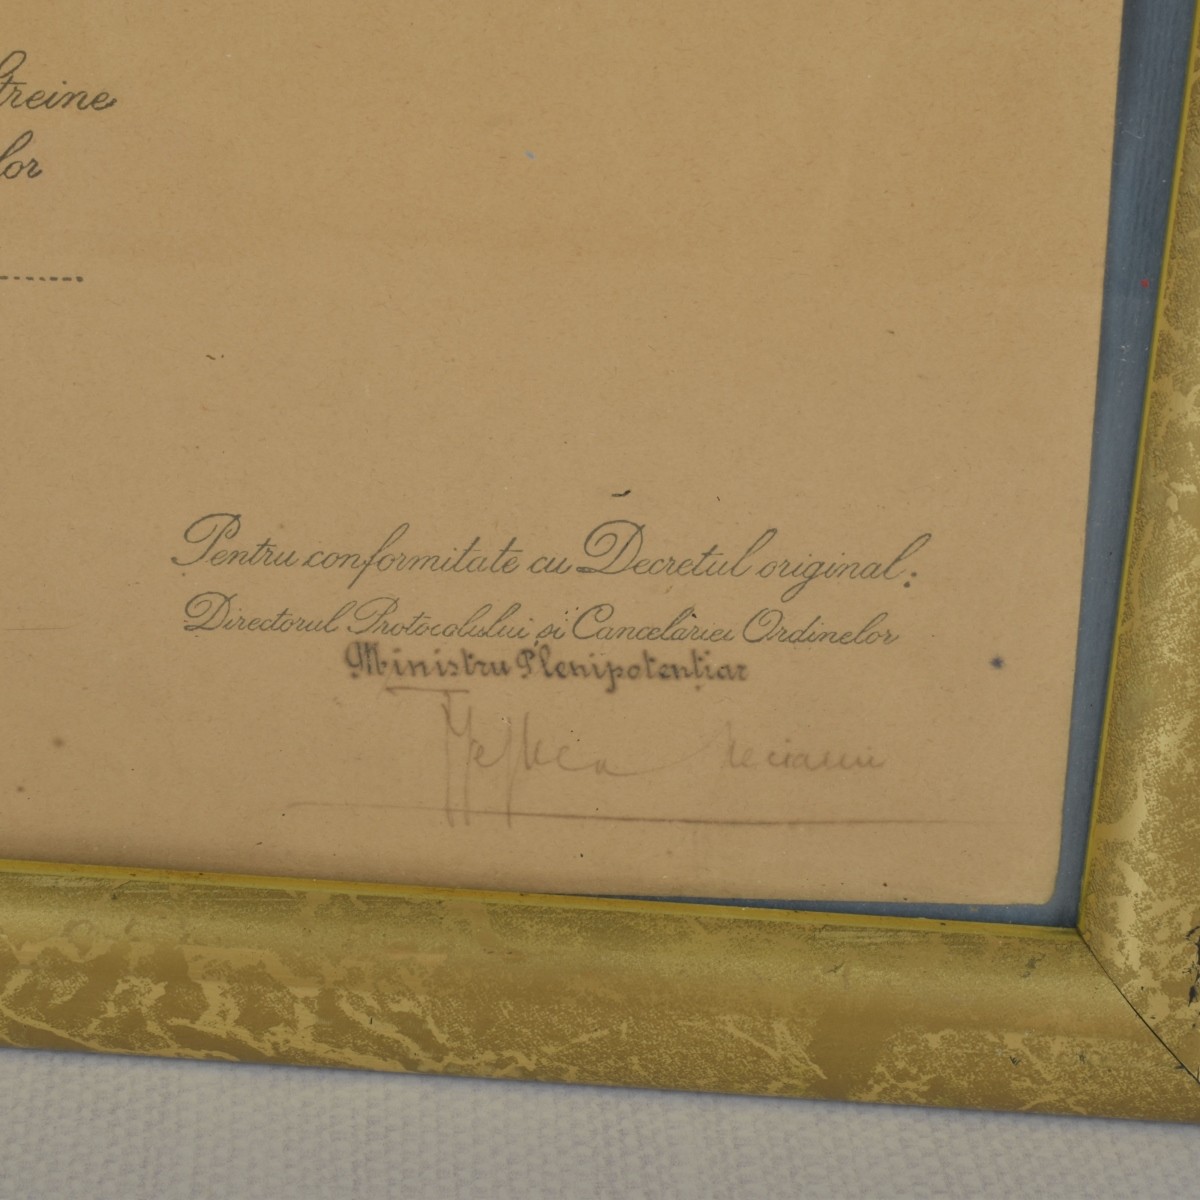 treine
lor
Pentru conformitate cu Decretul original:
Directorul Protocolului și Cancelariei Ordinelor
Ministru Plenipotentiar